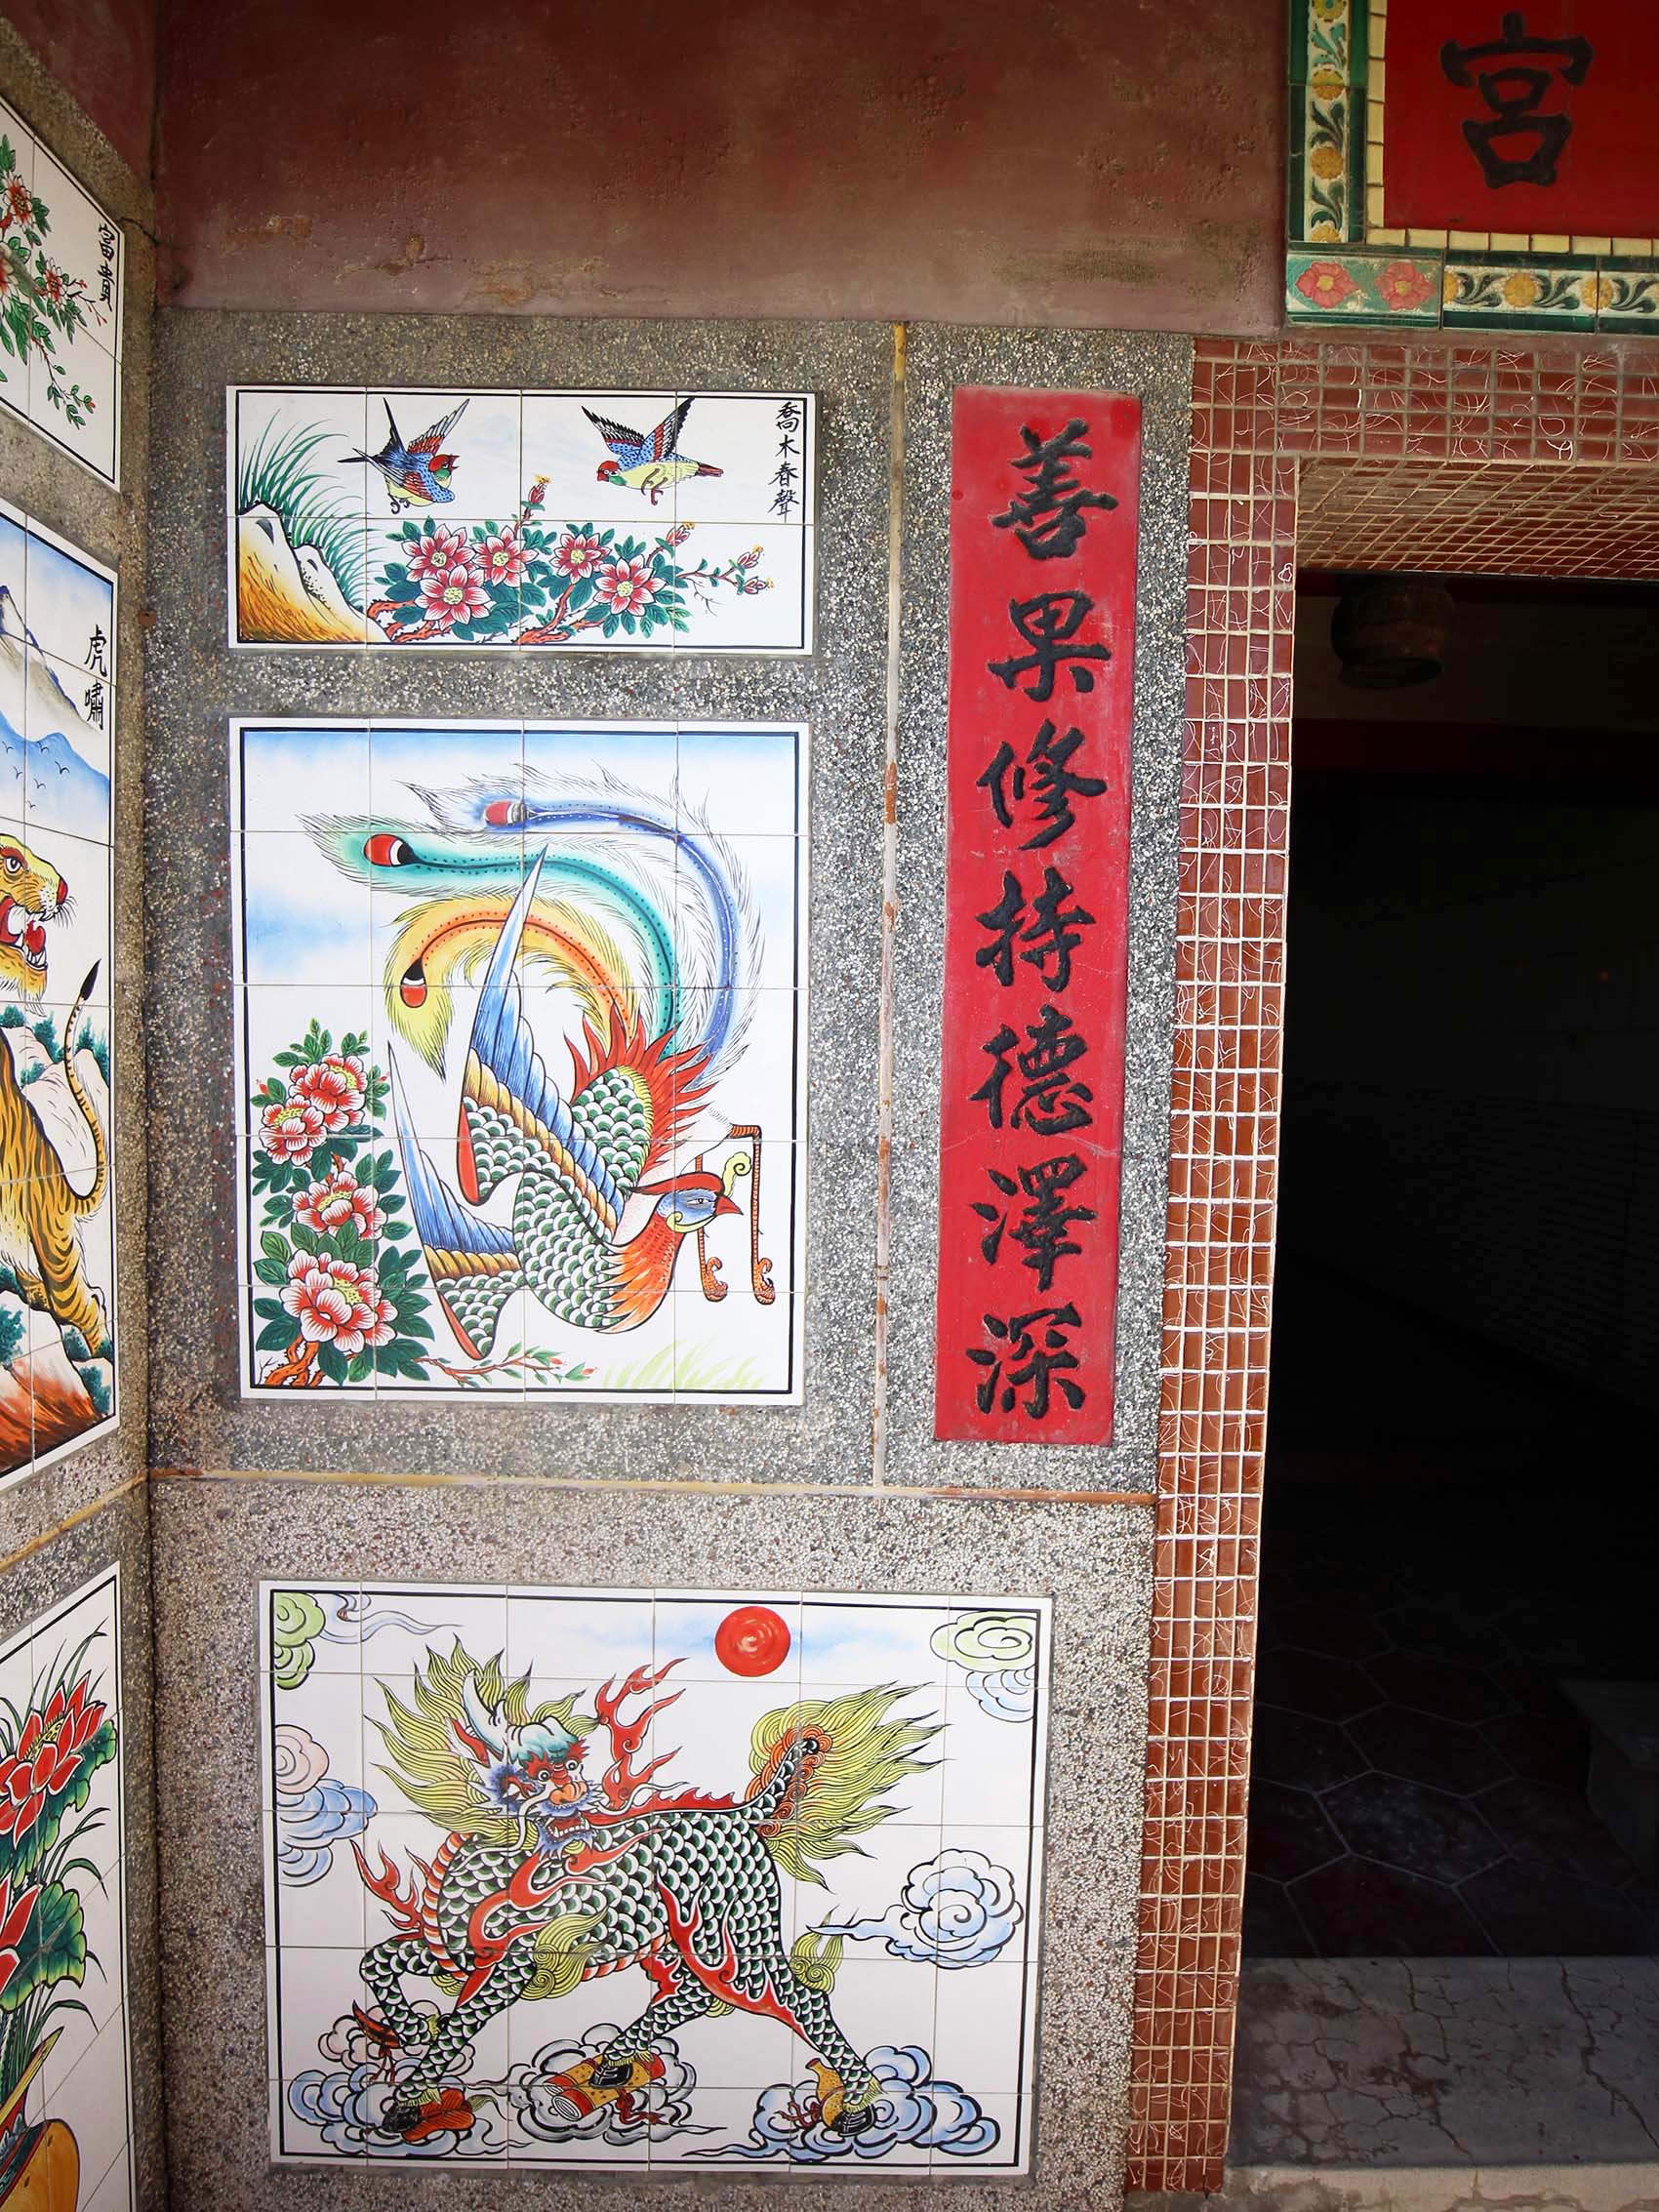 宮
富貴
喬木春聲
虎嘯
善果修持德澤深